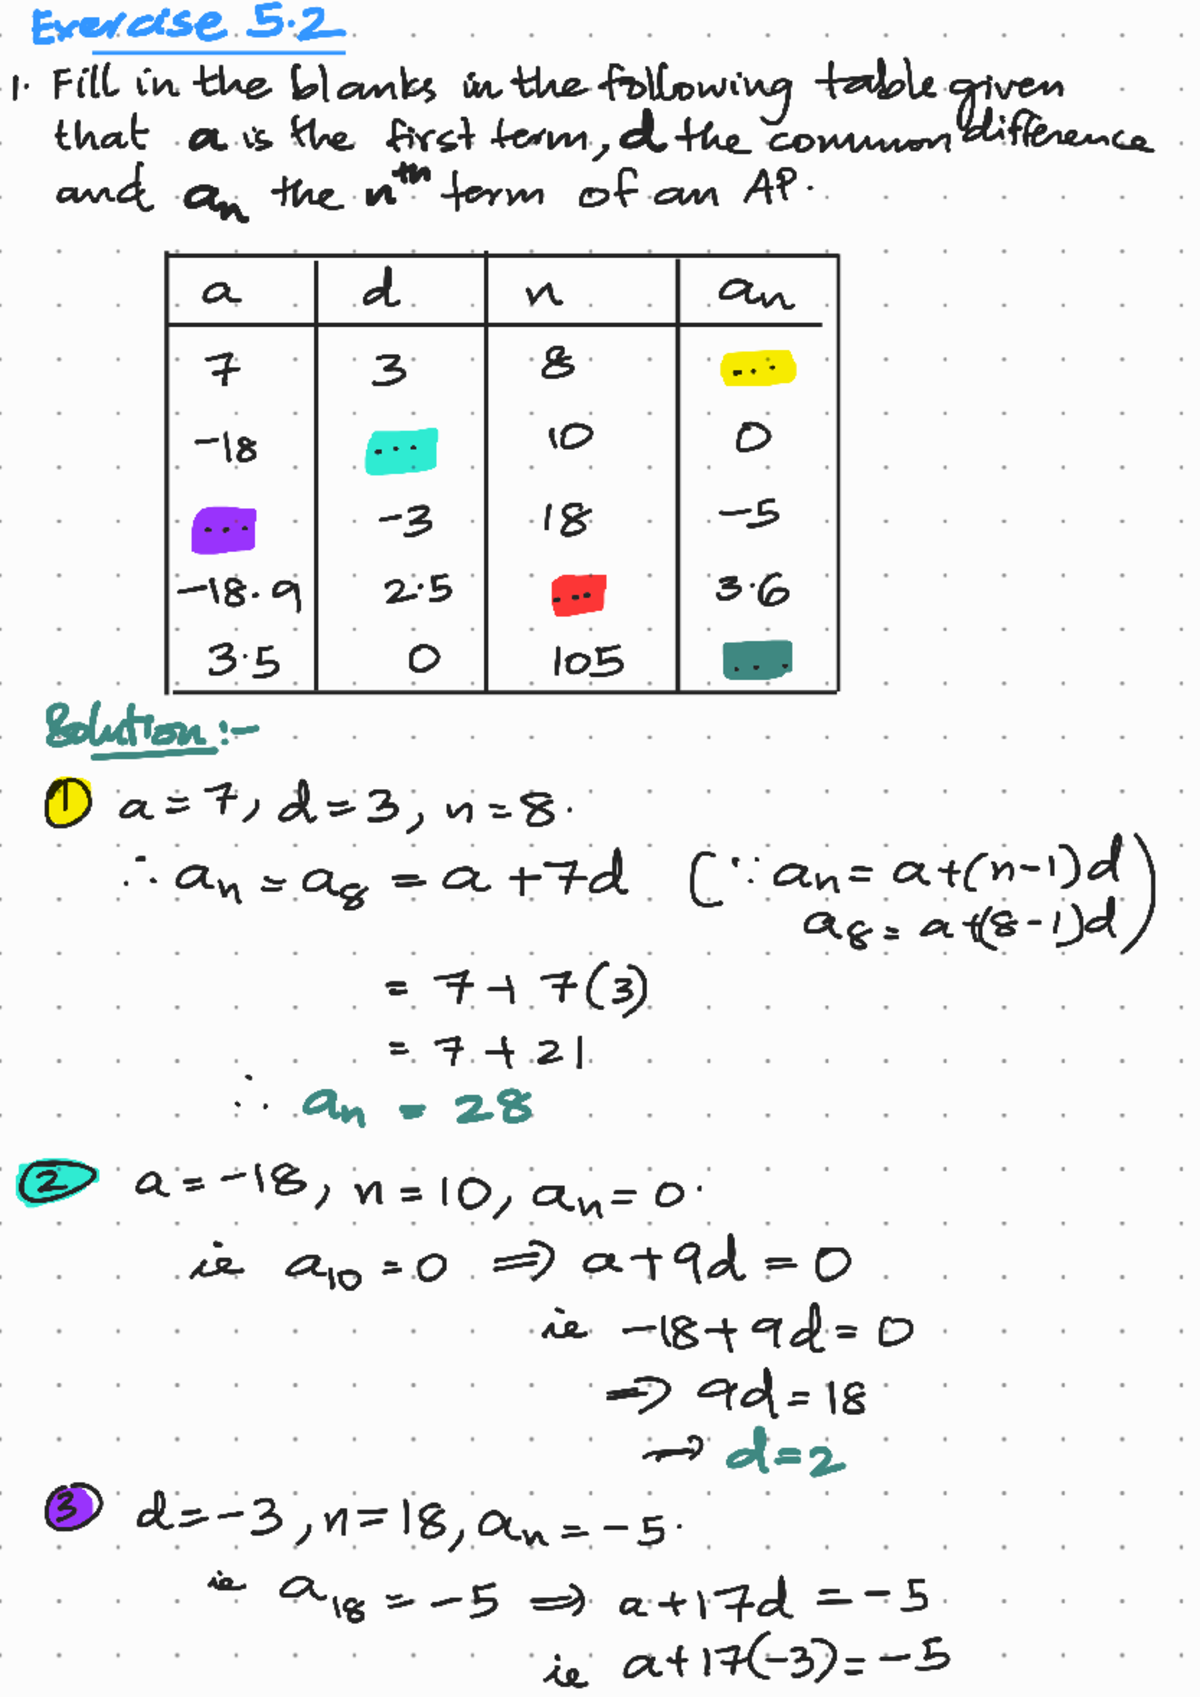 Exercise 5.2
1. Fill in the blanks in the following table given
that a is the first term, d the common difference
and aₙ the nᵗʰ term of an AP.
a d n aₙ
7 3 8 ...
-18 ... 10 0
... -3 18 -5
-18.9 2.5 ... 3.6
3.5 0 105 ...
Solution:-
① a = 7, d = 3, n = 8.
∴ aₙ = a₈ = a + 7d (∵ aₙ = a + (n-1)d
a₈ = a + (8-1)d)
= 7 + 7(3)
= 7 + 21
∴ aₙ = 28
② a = -18, n = 10, aₙ = 0.
ie a₁₀ = 0 ⟹ a + 9d = 0
ie -18 + 9d = 0
⟹ 9d = 18
→ d = 2
③ d = -3, n = 18, aₙ = -5.
ie a₁₈ = -5 ⟹ a + 17d = -5
ie a + 17(-3) = -5